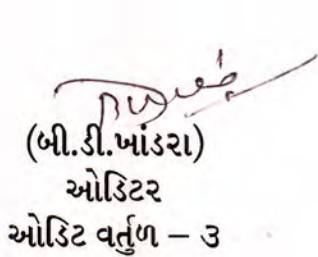 (બી.ડી.ખાંડરા)
ઓડિટર
ઓડિટ વર્તુળ – ૩